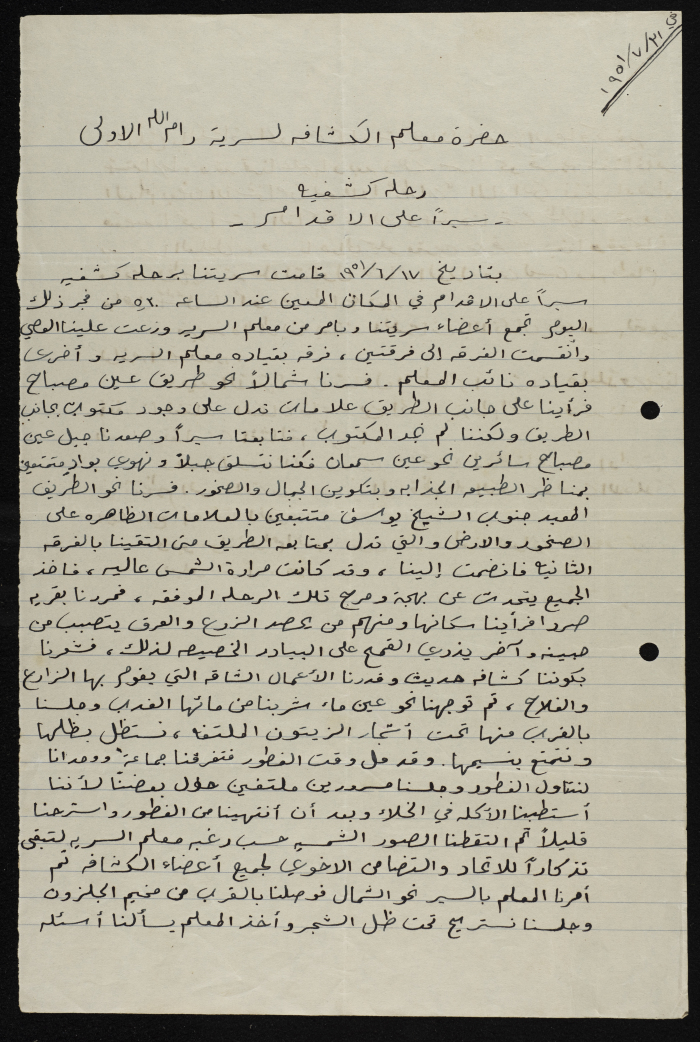 في ٢١/٧/١٩٥١
حضرة معلم الكشافه لسرية رام الله الاولى
رحله كشفيه
- سيراً على الاقدام -
بتاريخ ١٧/٦/١٩٥١ قامت سريتنا برحله كشفيه
سيراً على الاقدام في المكان المعين عند الساعه ٥٫٣٠ من فجر ذلك
اليوم تجمع أعضاء سريتنا وبامر من معلم السريه وزعت علينا العصي
وانقسمت الفرقه إلى فرقتين ، فرقه بقياده معلم السريه وأخرى
بقياده نائب المعلم . فسرنا شمالاً نحو طريق عين مصباح
فرأينا على جانب الطريق علامات تدل على وجود مكتوب بجانب
الطريق ولكننا لم نجد المكتوب ، فتابعنا سيراً وصعدنا جبل عين
مصباح سائرين نحو عين سمعان فكنا نتسلق جبلاً ونهوي بوادٍ متمتعين
بمناظر الطبيعه الجذابه وبتكوين الجبال والصخور . فسرنا نحو الطريق
المعبد جنوب الشيخ يوسف متتبعين بالعلامات الظاهره على
الصخور والارض والتي تدل بمتابعه الطريق حتى التقينا بالفرقه
الثانيه فانضمت إلينا ، وقد كانت حرارة الشمس عاليه ، فاخذ
الجميع يتحدث عن بهجة ومرح تلك الرحله الموفقه ، فمررنا بقريه
صردا فرأينا سكانها ومنهم من يحصد الزرع والعرق يتصبب من
جبينه وآخر يذري القمح على البيادر الخصيصه لذلك ، فشعرنا
بكوننا كشافه حديث وقدرنا الأعمال الشاقه التي يقوم بها الزارع
والفلاح ، ثم توجهنا نحو عين ماء شربنا من مائها العذب وجلسنا
بالقرب منها تحت أشجار الزيتون الملتفه ، نستظل بظلها
ونتمتع بنسيمها . وقد حل وقت الفطور فتفرقنا جماعةً ووحدانا
لنتناول الفطور وجلسنا مسرورين ملتفين حول بعضنا لأننا
أستطبنا الأكله في الخلاء وبعد أن أنتهينا من الفطور واسترحنا
قليلاً ثم التقطنا الصور الشمسيه حسب رغبه معلم السريه لتبقى
تذكاراً للاتحاد والتضامن الاخوي لجميع أعضاء الكشافه ثم
أمرنا المعلم بالسير نحو الشمال فوصلنا بالقرب من مخيم الجلزون
وجلسنا نستريح تحت ظل الشجر وأخذ المعلم يسألنا أسئله